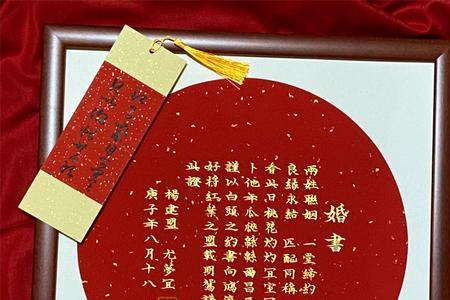 婚書
兩姓聯姻 一堂締約
良緣永結 匹配同稱
看此日桃花灼灼宜室
卜他年瓜瓞綿綿爾昌
謹以白頭之約書向鴻
好將紅葉之盟載明鴛
此證
楊建盟 尤夢宜
庚子年八月十八